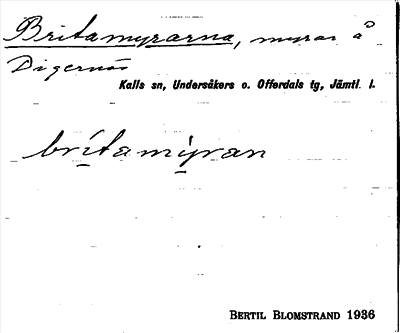 Britamyrarna, myrar å
Digernäs
Kalls sn, Undersåkers o. Offerdals tg, Jämtl. l.
britamyran
BERTIL BLOMSTRAND 1936